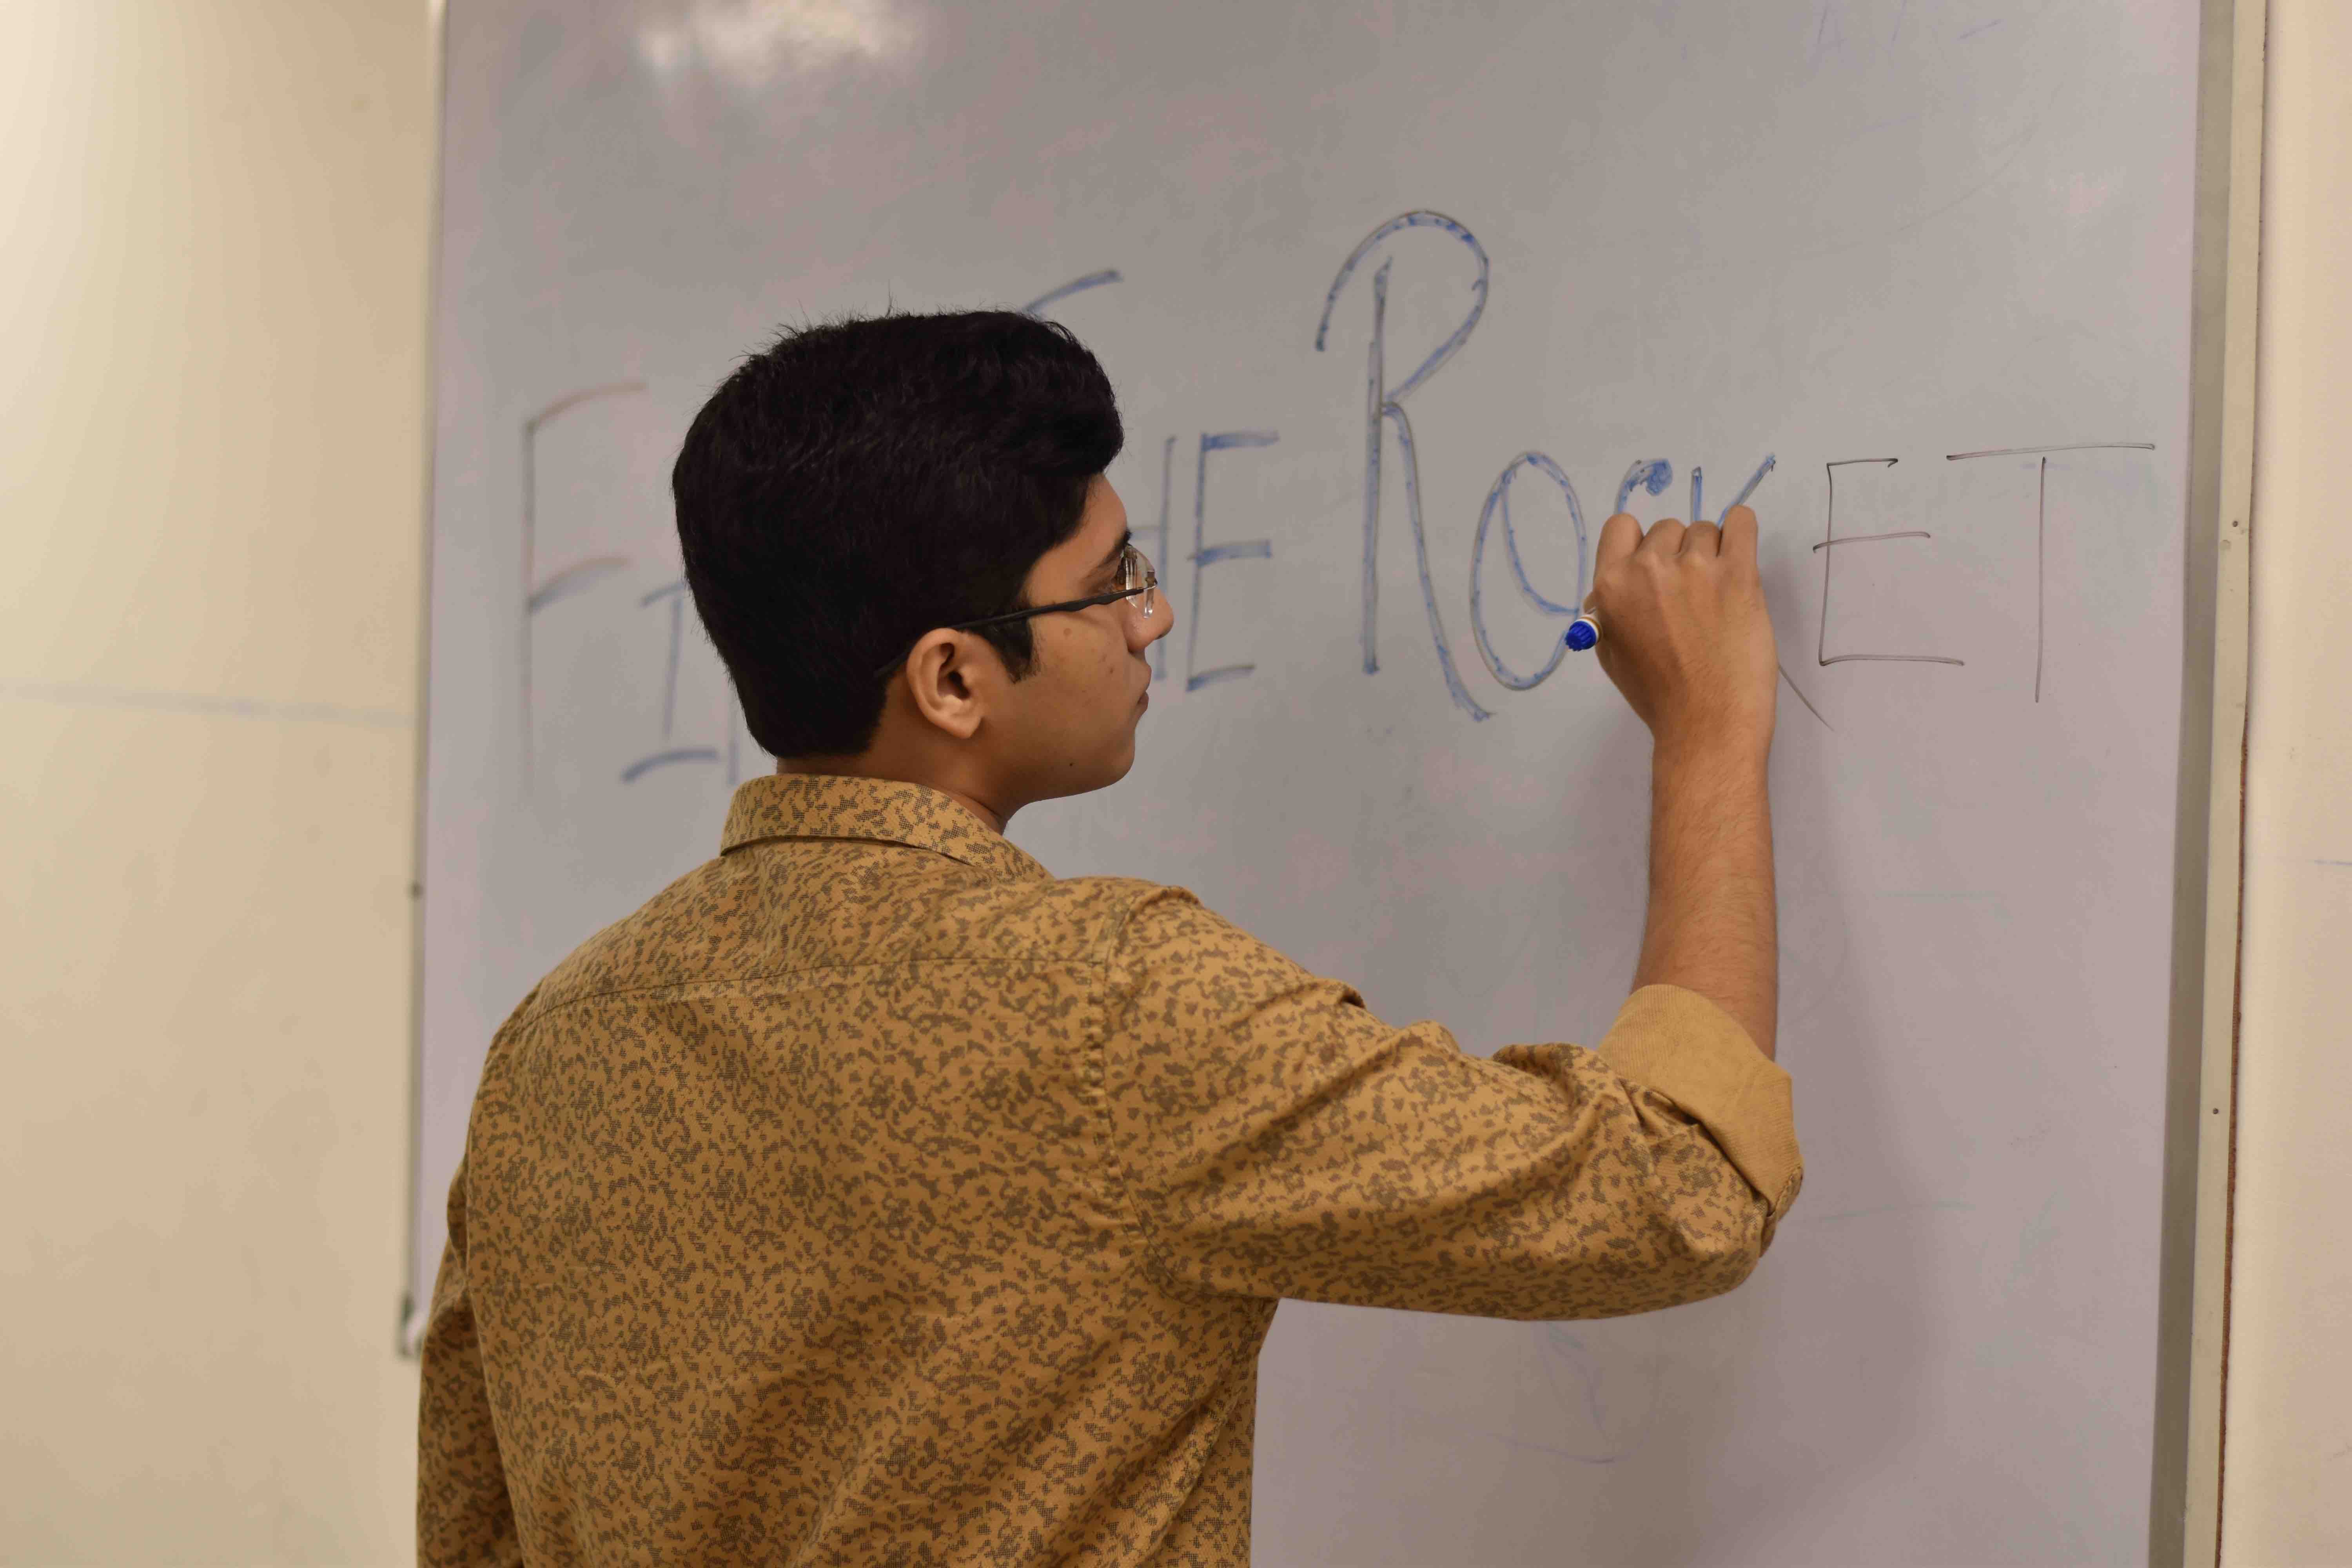 THE ROCKET